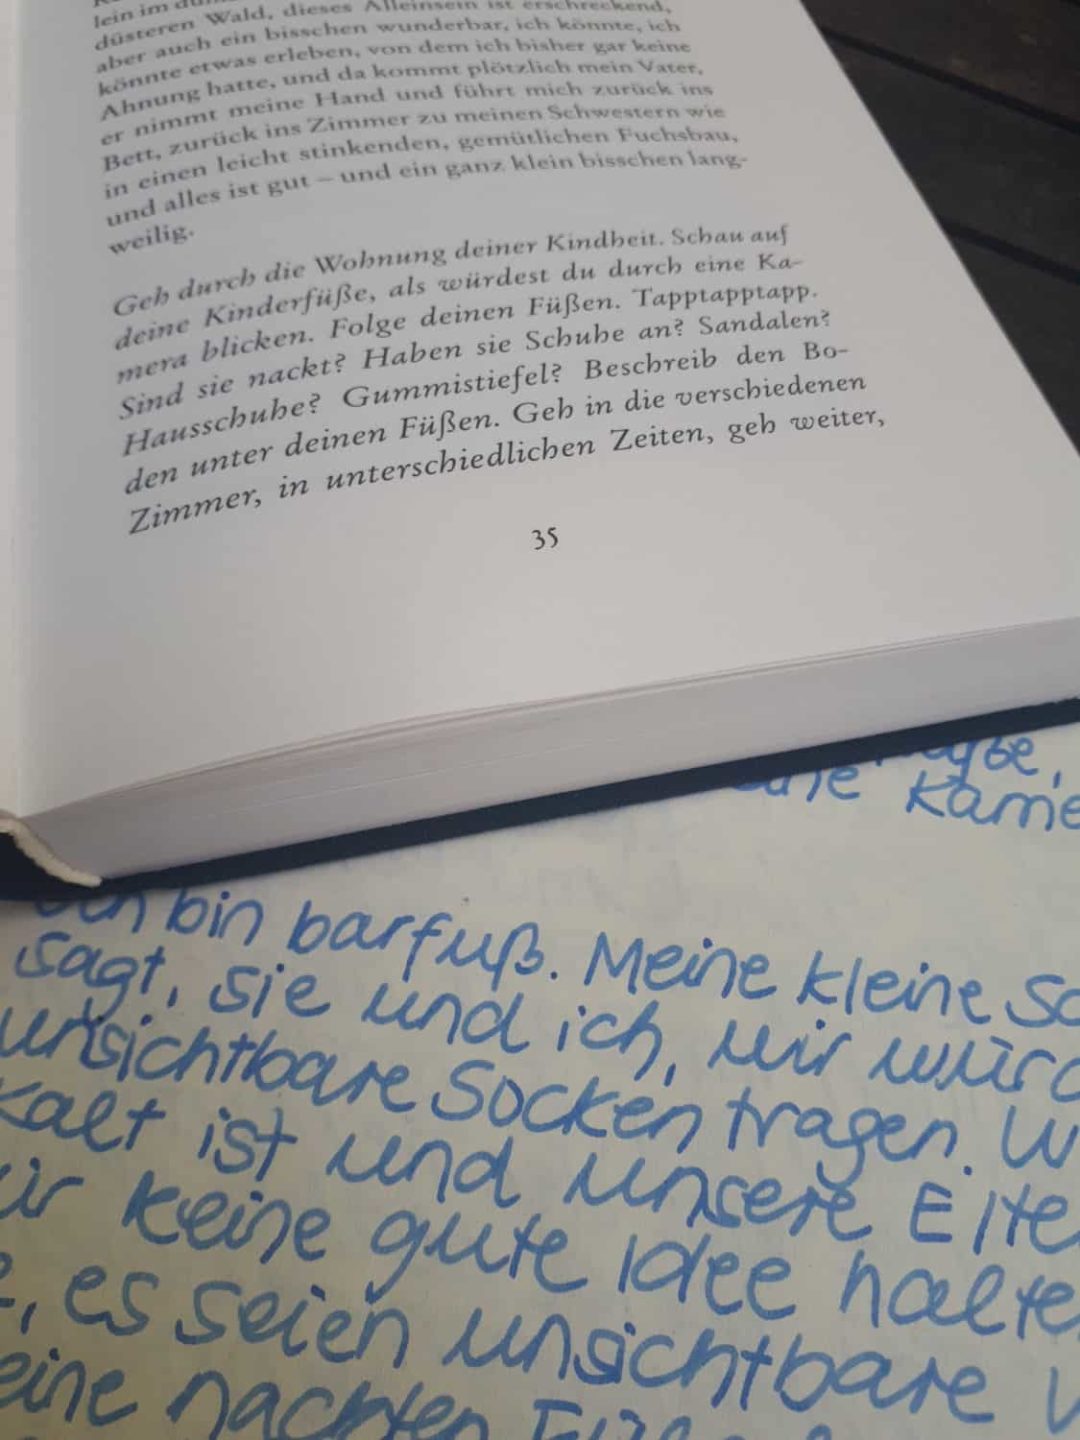 lein im
düsteren Wald, dieses Alleinsein ist erschreckend,
aber auch ein bisschen wunderbar, ich könnte, ich
könnte etwas erleben, von dem ich bisher gar keine
Ahnung hatte, und da kommt plötzlich mein Vater,
er nimmt meine Hand und führt mich zurück ins
Bett, zurück ins Zimmer zu meinen Schwestern wie
in einen leicht stinkenden, gemütlichen Fuchsbau,
und alles ist gut – und ein ganz klein bisschen lang-
weilig.
Geh durch die Wohnung deiner Kindheit. Schau auf
deine Kinderfüße, als würdest du durch eine Ka-
mera blicken. Folge deinen Füßen. Tapptapptapp.
Sind sie nackt? Haben sie Schuhe an? Sandalen?
Hausschuhe? Gummistiefel? Beschreib den Bo-
den unter deinen Füßen. Geh in die verschiedenen
Zimmer, in unterschiedlichen Zeiten, geh weiter,
35
Kame
bin barfuß. Meine kleine Sc
sagt, sie und ich, wir würd
unsichtbare Socken tragen. W
kalt ist und unsere Elte
ir keine gute Idee halte
, es seien unsichtbare
eine nackten